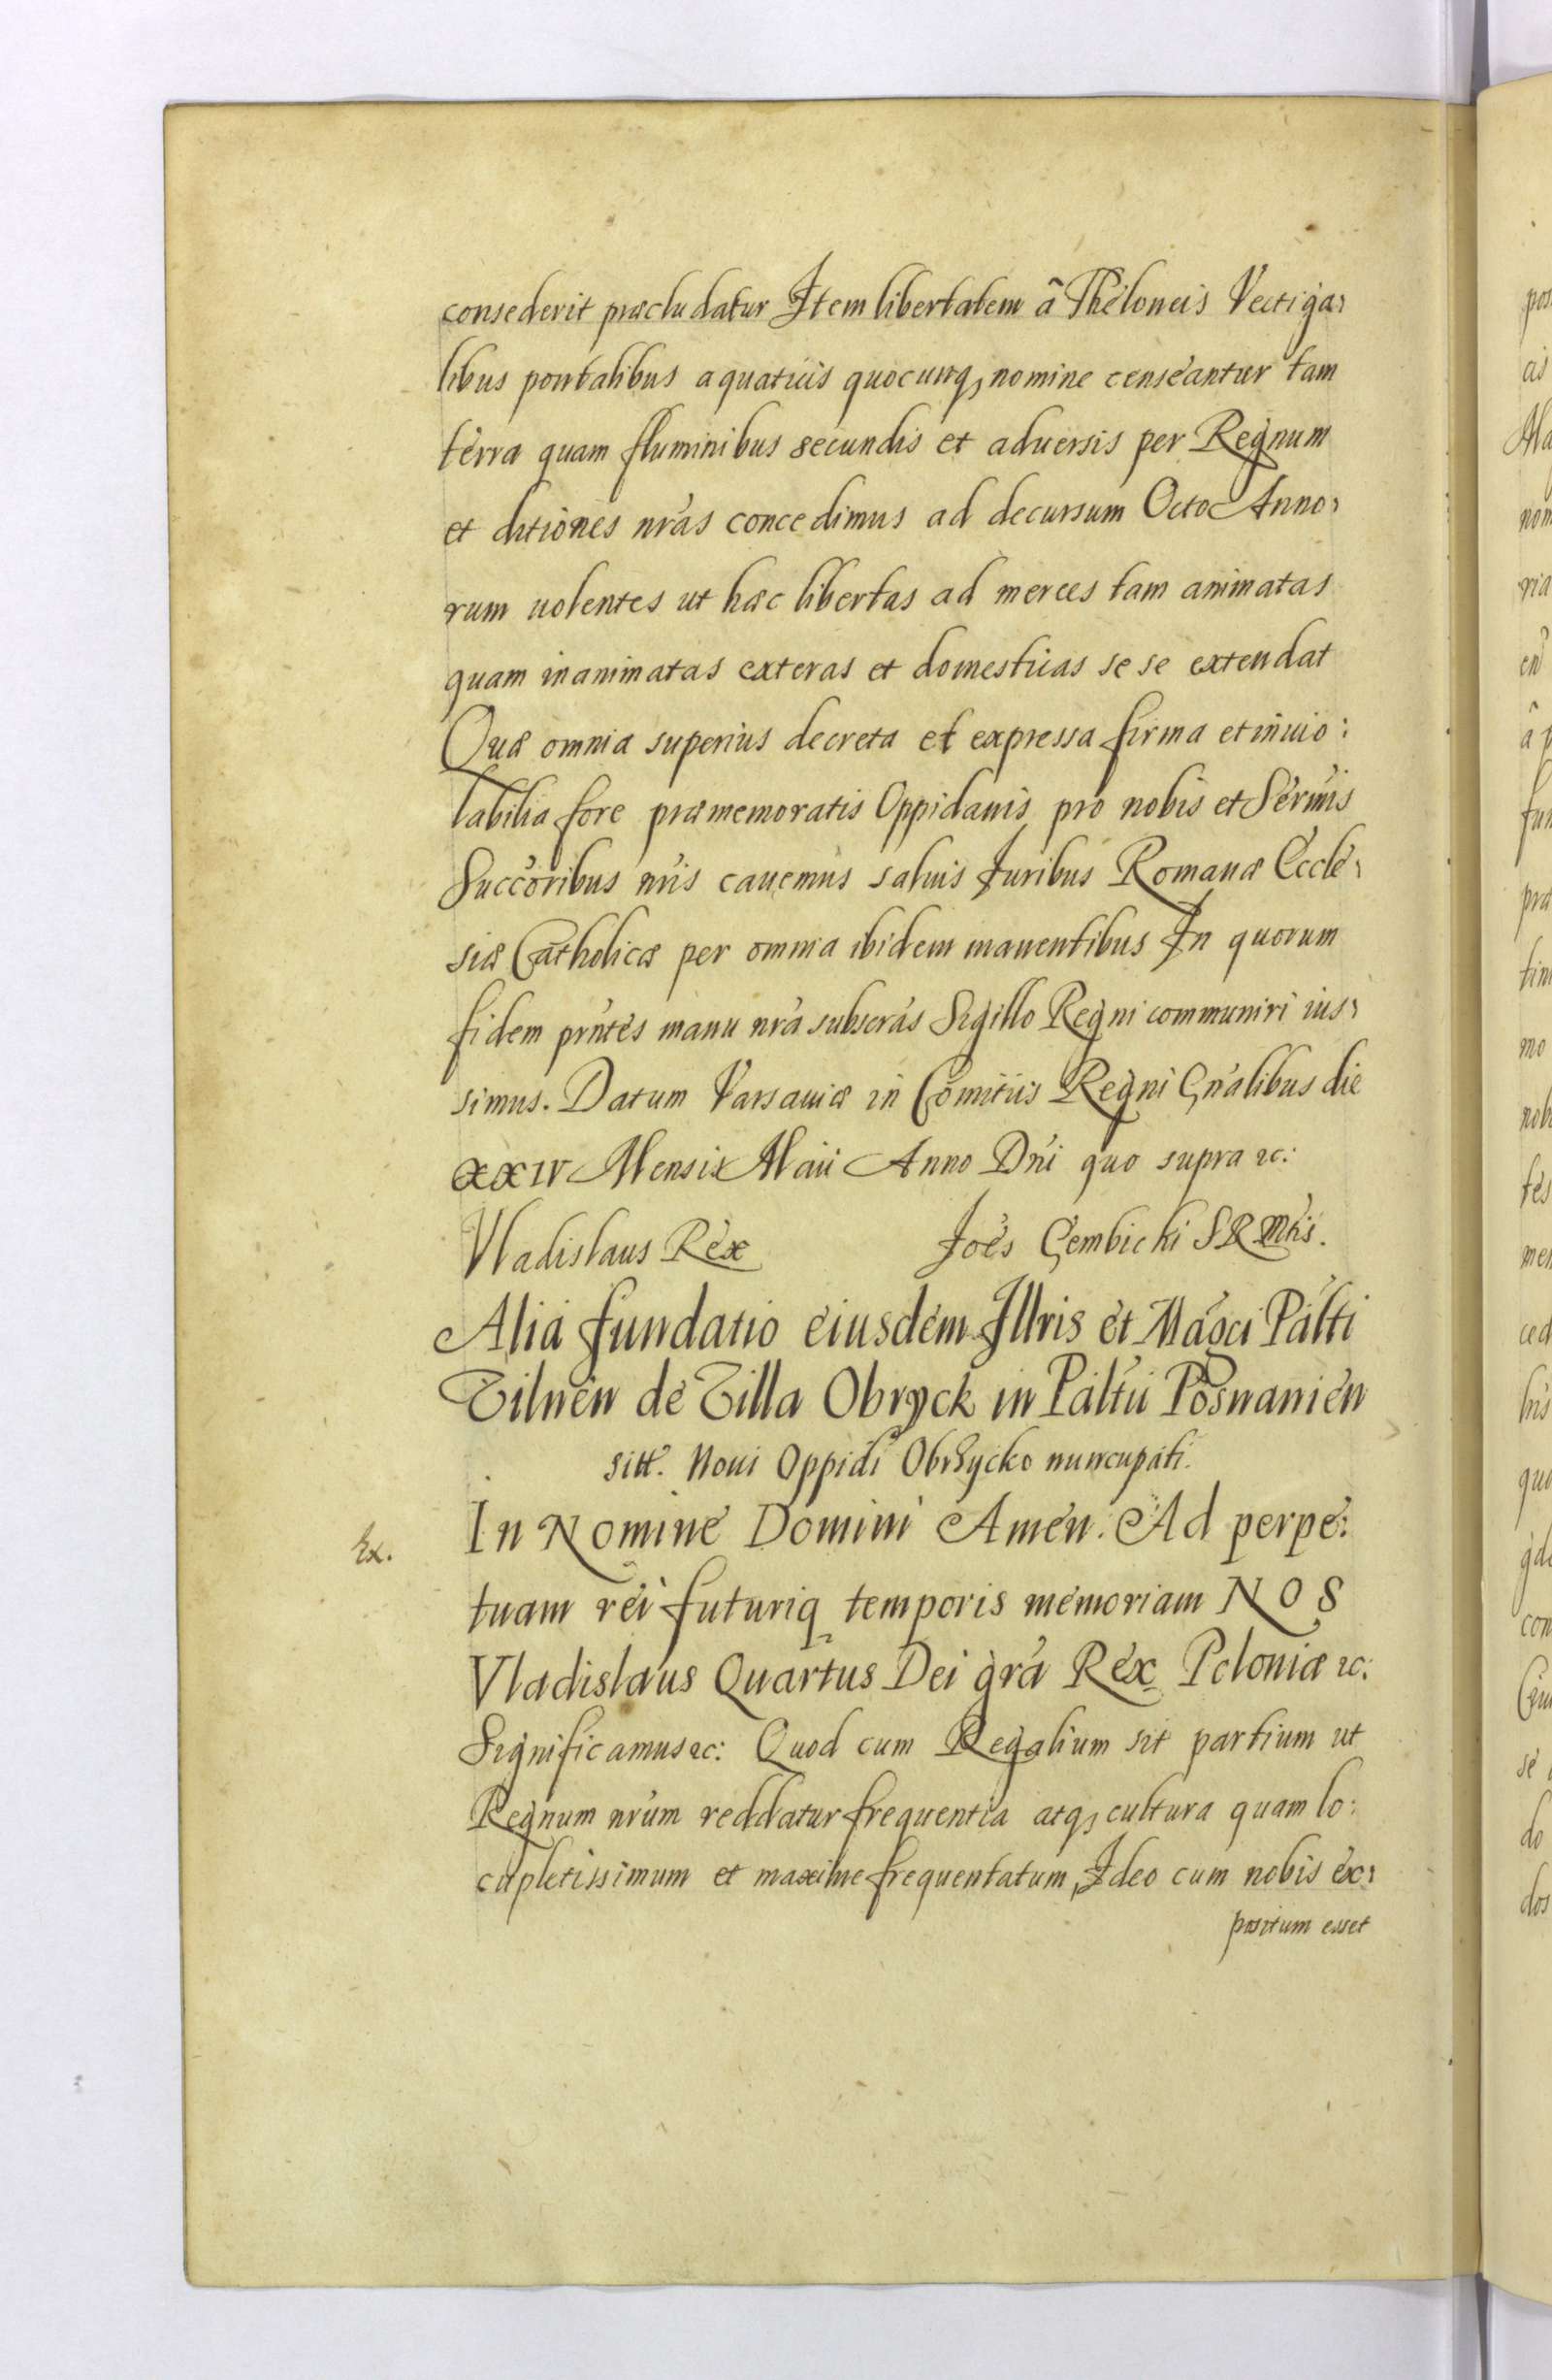 consederit præcludatur Item libertatem â Théloneis Vectiga:
libus pontalibus aquaticis quocunq; nomine censeantur tam
terra quam fluminibus secundis et aduersis per Regnum
et ditiones nr̃as concedimus ad decursum Octo Anno:
rum uolentes ut hæc libertas ad merces tam animatas
quam inanimatas exteras et domesticas se se extendat
Quæ omnia superius decreta et expressa firma et inuio:
labilia fore præmemoratis Oppidanis pro nobis et Serm̃is
Succõribus nr̃is cauemus saluis Juribus Romanæ Eccle:
siæ Catholicæ per omnia ibidem manentibus In quorum
fidem prñtes manu nr̃a subscr̃as Sigillo Regni communiri ius:
simus. Datum Varsauiæ in Comitiis Regni Gñalibus die
XXIV Mensis Maii Anno Dñi quo supra ꝛc:
Vladislaus Rex Joẽs Gembicki S R Mtis.
Alia fundatio eiusdem Illris et Magci Palti
Vilnen de Villa Obryck in Paltu Posnanien
sitt. Noui Oppidi Obrzycko nuncupati.
Ex.
In Nomine Domini Amen. Ad perpe:
tuam rei futuriq temporis memoriam NOS
Vladislaus Quartus Dei gr̃a Rex Poloniæ ꝛc:
Significamus ꝛc: Quod cum Regalium sit partium ut
Regnum nr̃um reddatur frequentia atq; cultura quam lo:
cupletissimum et maxime frequentatum, Ideo cum nobis ex:
positum esset